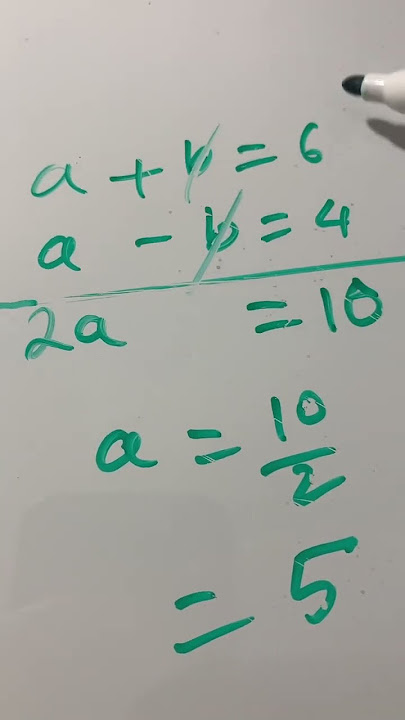 a + b = 6
a - b = 4
2a = 10
a = 10/2
= 5